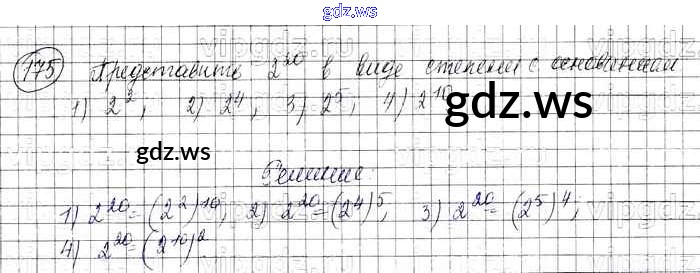 gdz.ws
175 Представить 2²⁰ в виде степени с основанием
1) 2²; 2) 2⁴; 3) 2⁵; 4) 2¹⁰
gdz.ws
gdz.ws
Решение
1) 2²⁰=(2²)¹⁰; 2) 2²⁰=(2⁴)⁵; 3) 2²⁰=(2⁵)⁴;
4) 2²⁰=(2¹⁰)²
gdz.ws